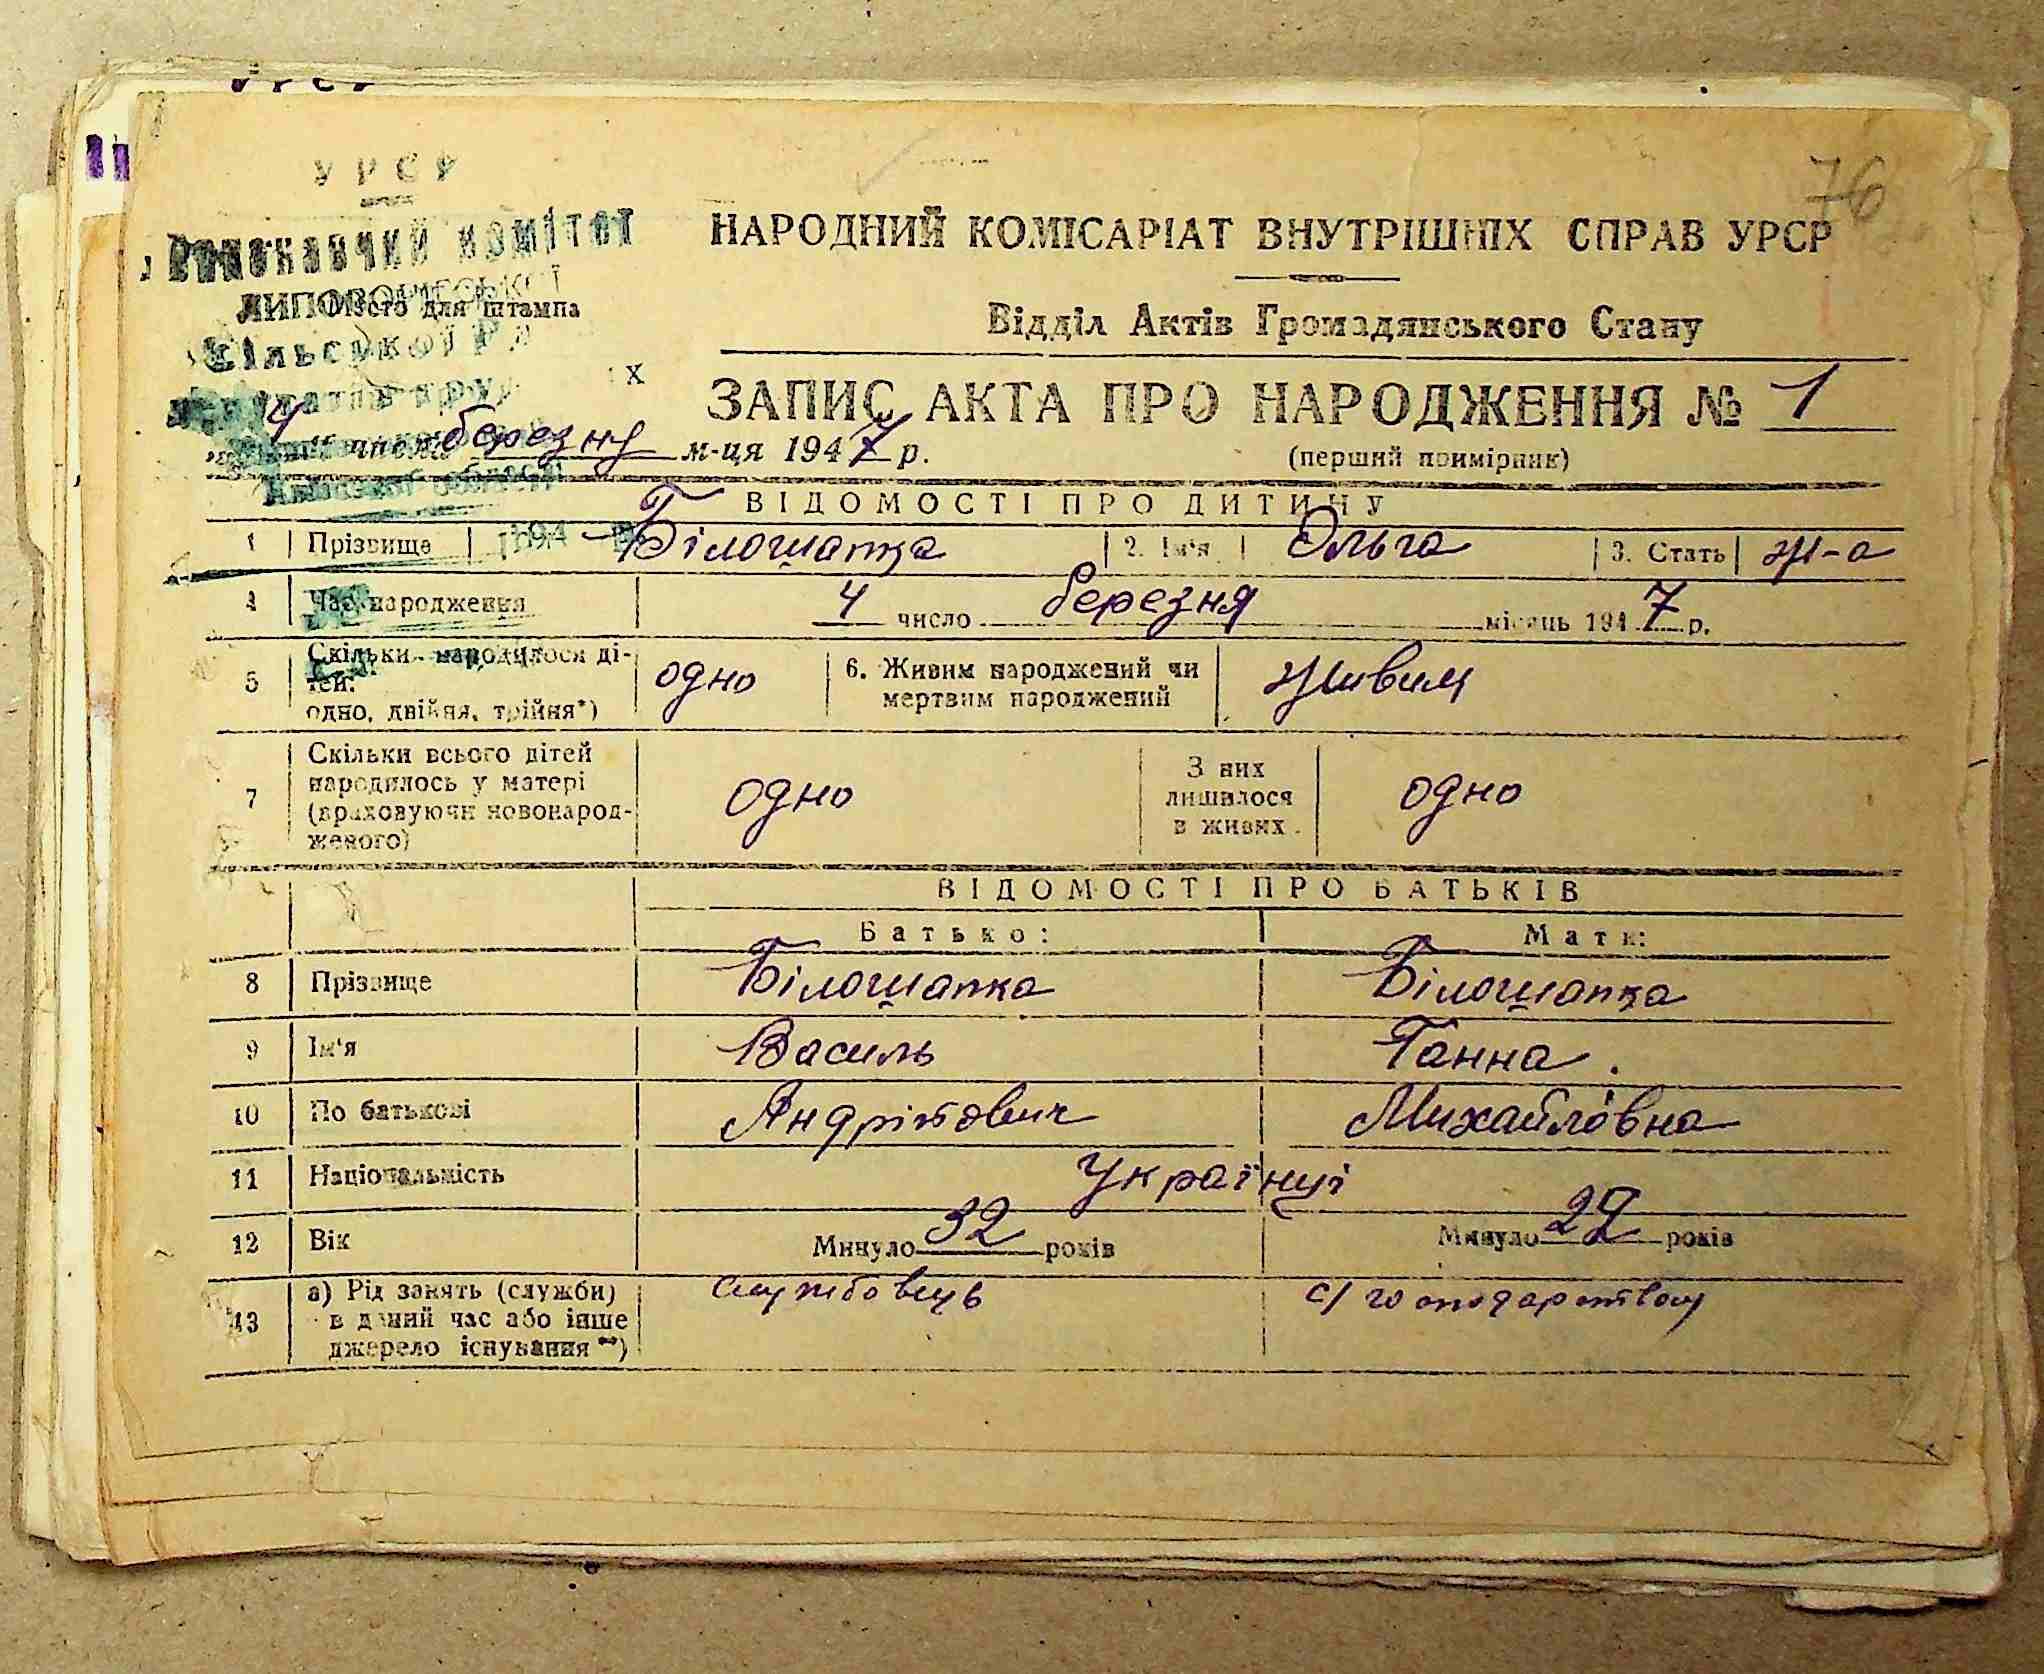 УРСР
76
Виконавчий комітет
НАРОДНИЙ КОМІСАРІАТ ВНУТРІШНІХ СПРАВ УРСР
Місто для штампа
Відділ Актів Громадянського Стану
Сільської
ЗАПИС АКТА ПРО НАРОДЖЕННЯ № 1
4 березня м-ця 1947 р.
(перший примірник)
ВІДОМОСТІ ПРО ДИТИНУ
1 Прізвище Білошапка 2. Ім'я Ольга 3. Стать ж-а
4 Час народження 4 число березня місяць 1947 р.
5 Скільки народилося дітей: одно, двійня, трійня*) одно 6. Живим народжений чи мертвим народжений живим
7 Скільки всього дітей народилось у матері (враховуючи новонародженого) одно З них лишилося в живих одно
ВІДОМОСТІ ПРО БАТЬКІВ
Батько: Мати:
8 Прізвище Білошапка Білошапка
9 Ім'я Василь Ганна
10 По батькові Андрійович Михайловна
11 Національність Українці
12 Вік Минуло 32 років Минуло 29 років
13 а) Рід занять (служби) в даний час або інше джерело існування **) службовець с/господарством